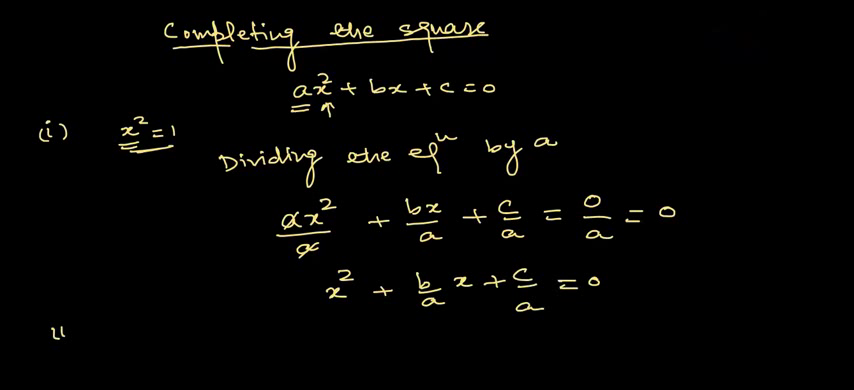 Completing the square
ax² + bx + c = 0
(i) x² = 1
Dividing the eqⁿ by a
ax²/a + bx/a + c/a = 0/a = 0
x² + b/a x + c/a = 0